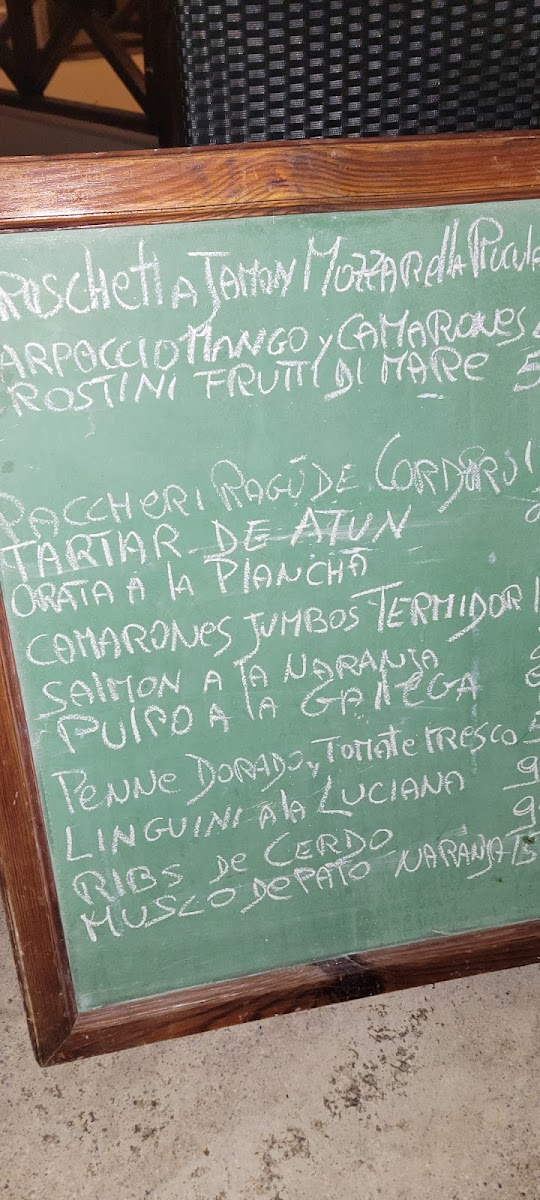 RUSCHETTA JAMON MOZZARELLA RUCULA
ARPOCCIO MANGO Y CAMARONES
ROSTINI FRUTTI DI MARE 5
PACCHERI RAGÚ DE CORDERO
TARTAR DE ATUN
ORATA A LA PLANCHA
CAMARONES JUMBOS TERMIDOR 1
SALMON A LA NARANJA
PULPO A LA GALLEGA
PENNE DORADO, TOMATE FRESCO 5
LINGUINI A LA LUCIANA 9
RIBS DE CERDO 9
MUSLO DE PATO NARANJA 13